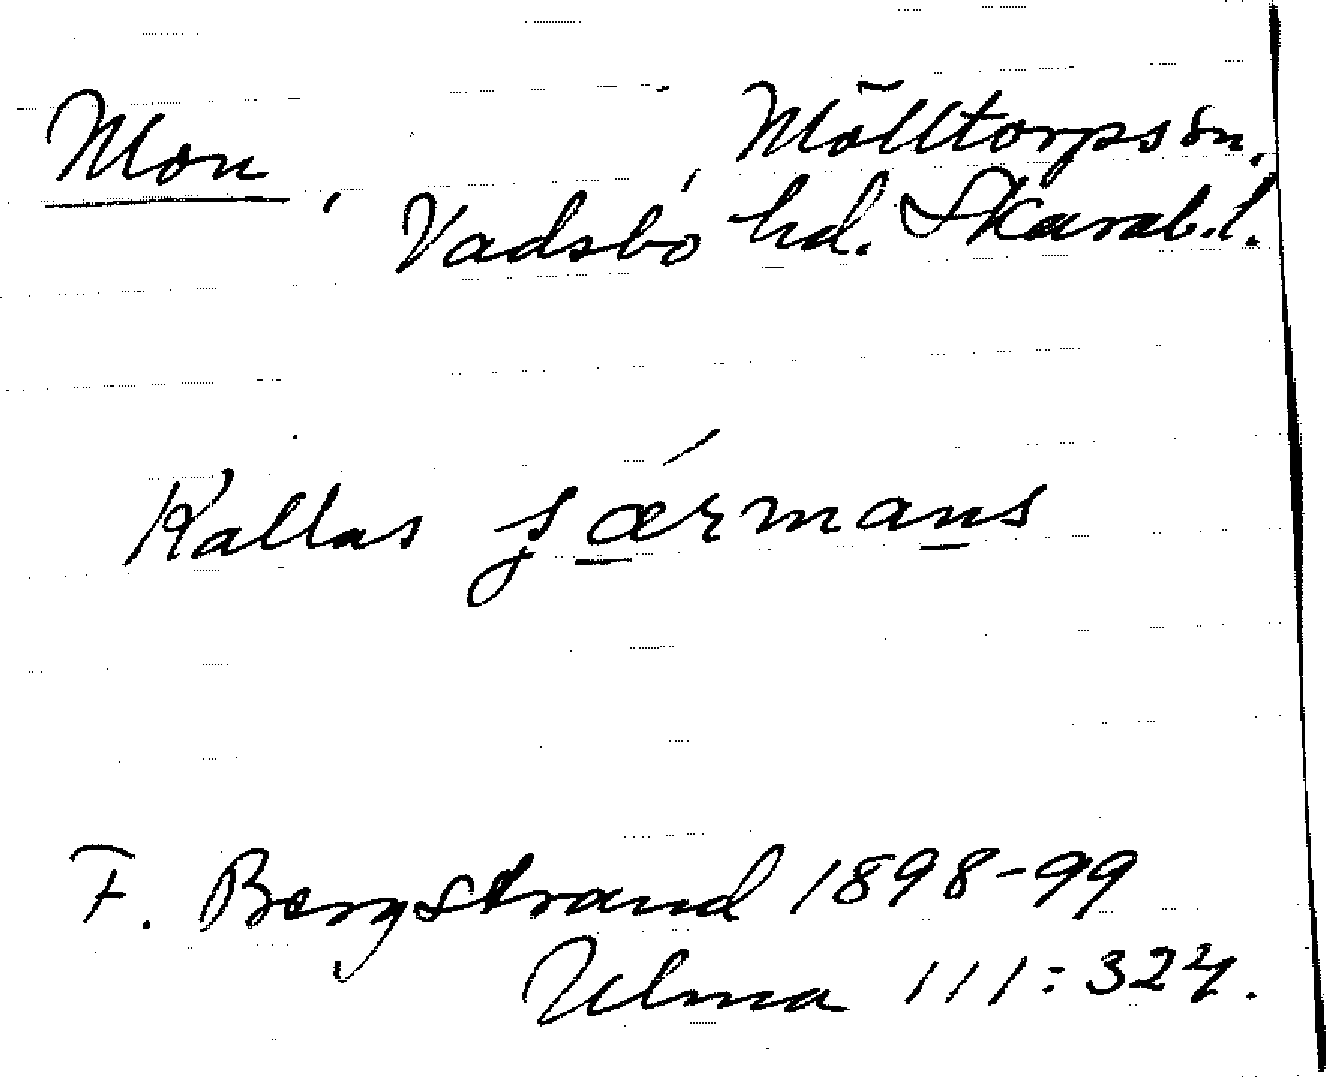 Mon, Mölltorps sn.
Vadsbo hd. Skarab.l.
Kallas ʝærmans
F. Bergstrand 1898-99
Ulma 111:324.